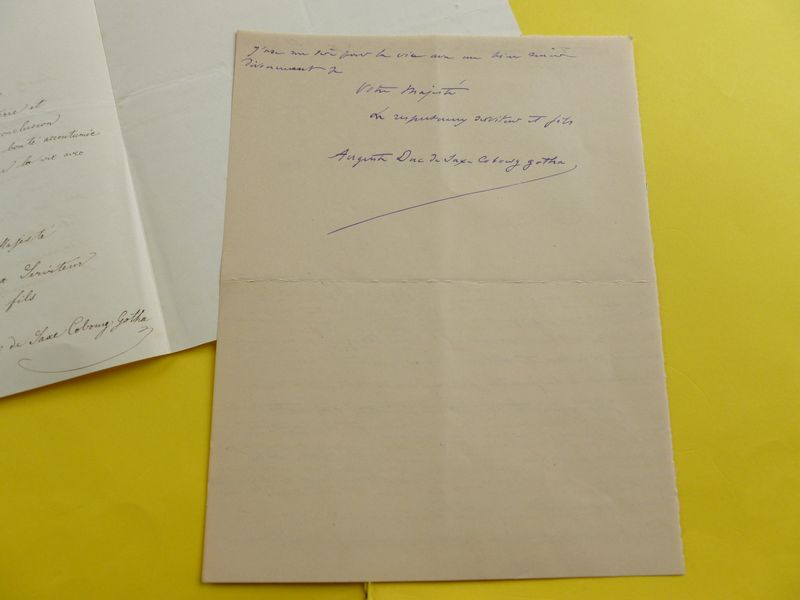 et
conclusion
bonté accoutumée
la vie avec
Majesté
Serviteur
fils
de Saxe Cobourg-Gotha
J'ose me dire pour la vie avec un bien sincère
dévouement de
Votre Majesté
Le respectueux serviteur et fils
Auguste Duc de Saxe Cobourg gotha